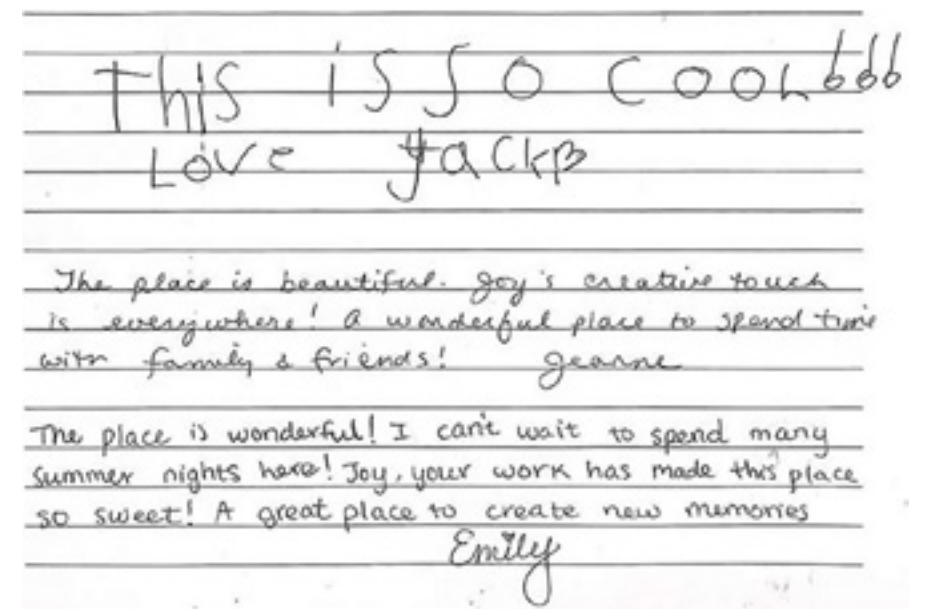 This is so cool!!!
Love Jack B
The place is beautiful. Joy's creative touch
is everywhere! A wonderful place to spend time
with family & friends! Jeanne
The place is wonderful! I can't wait to spend many
summer nights here! Joy, your work has made this place
so sweet! A great place to create new memories
Emily